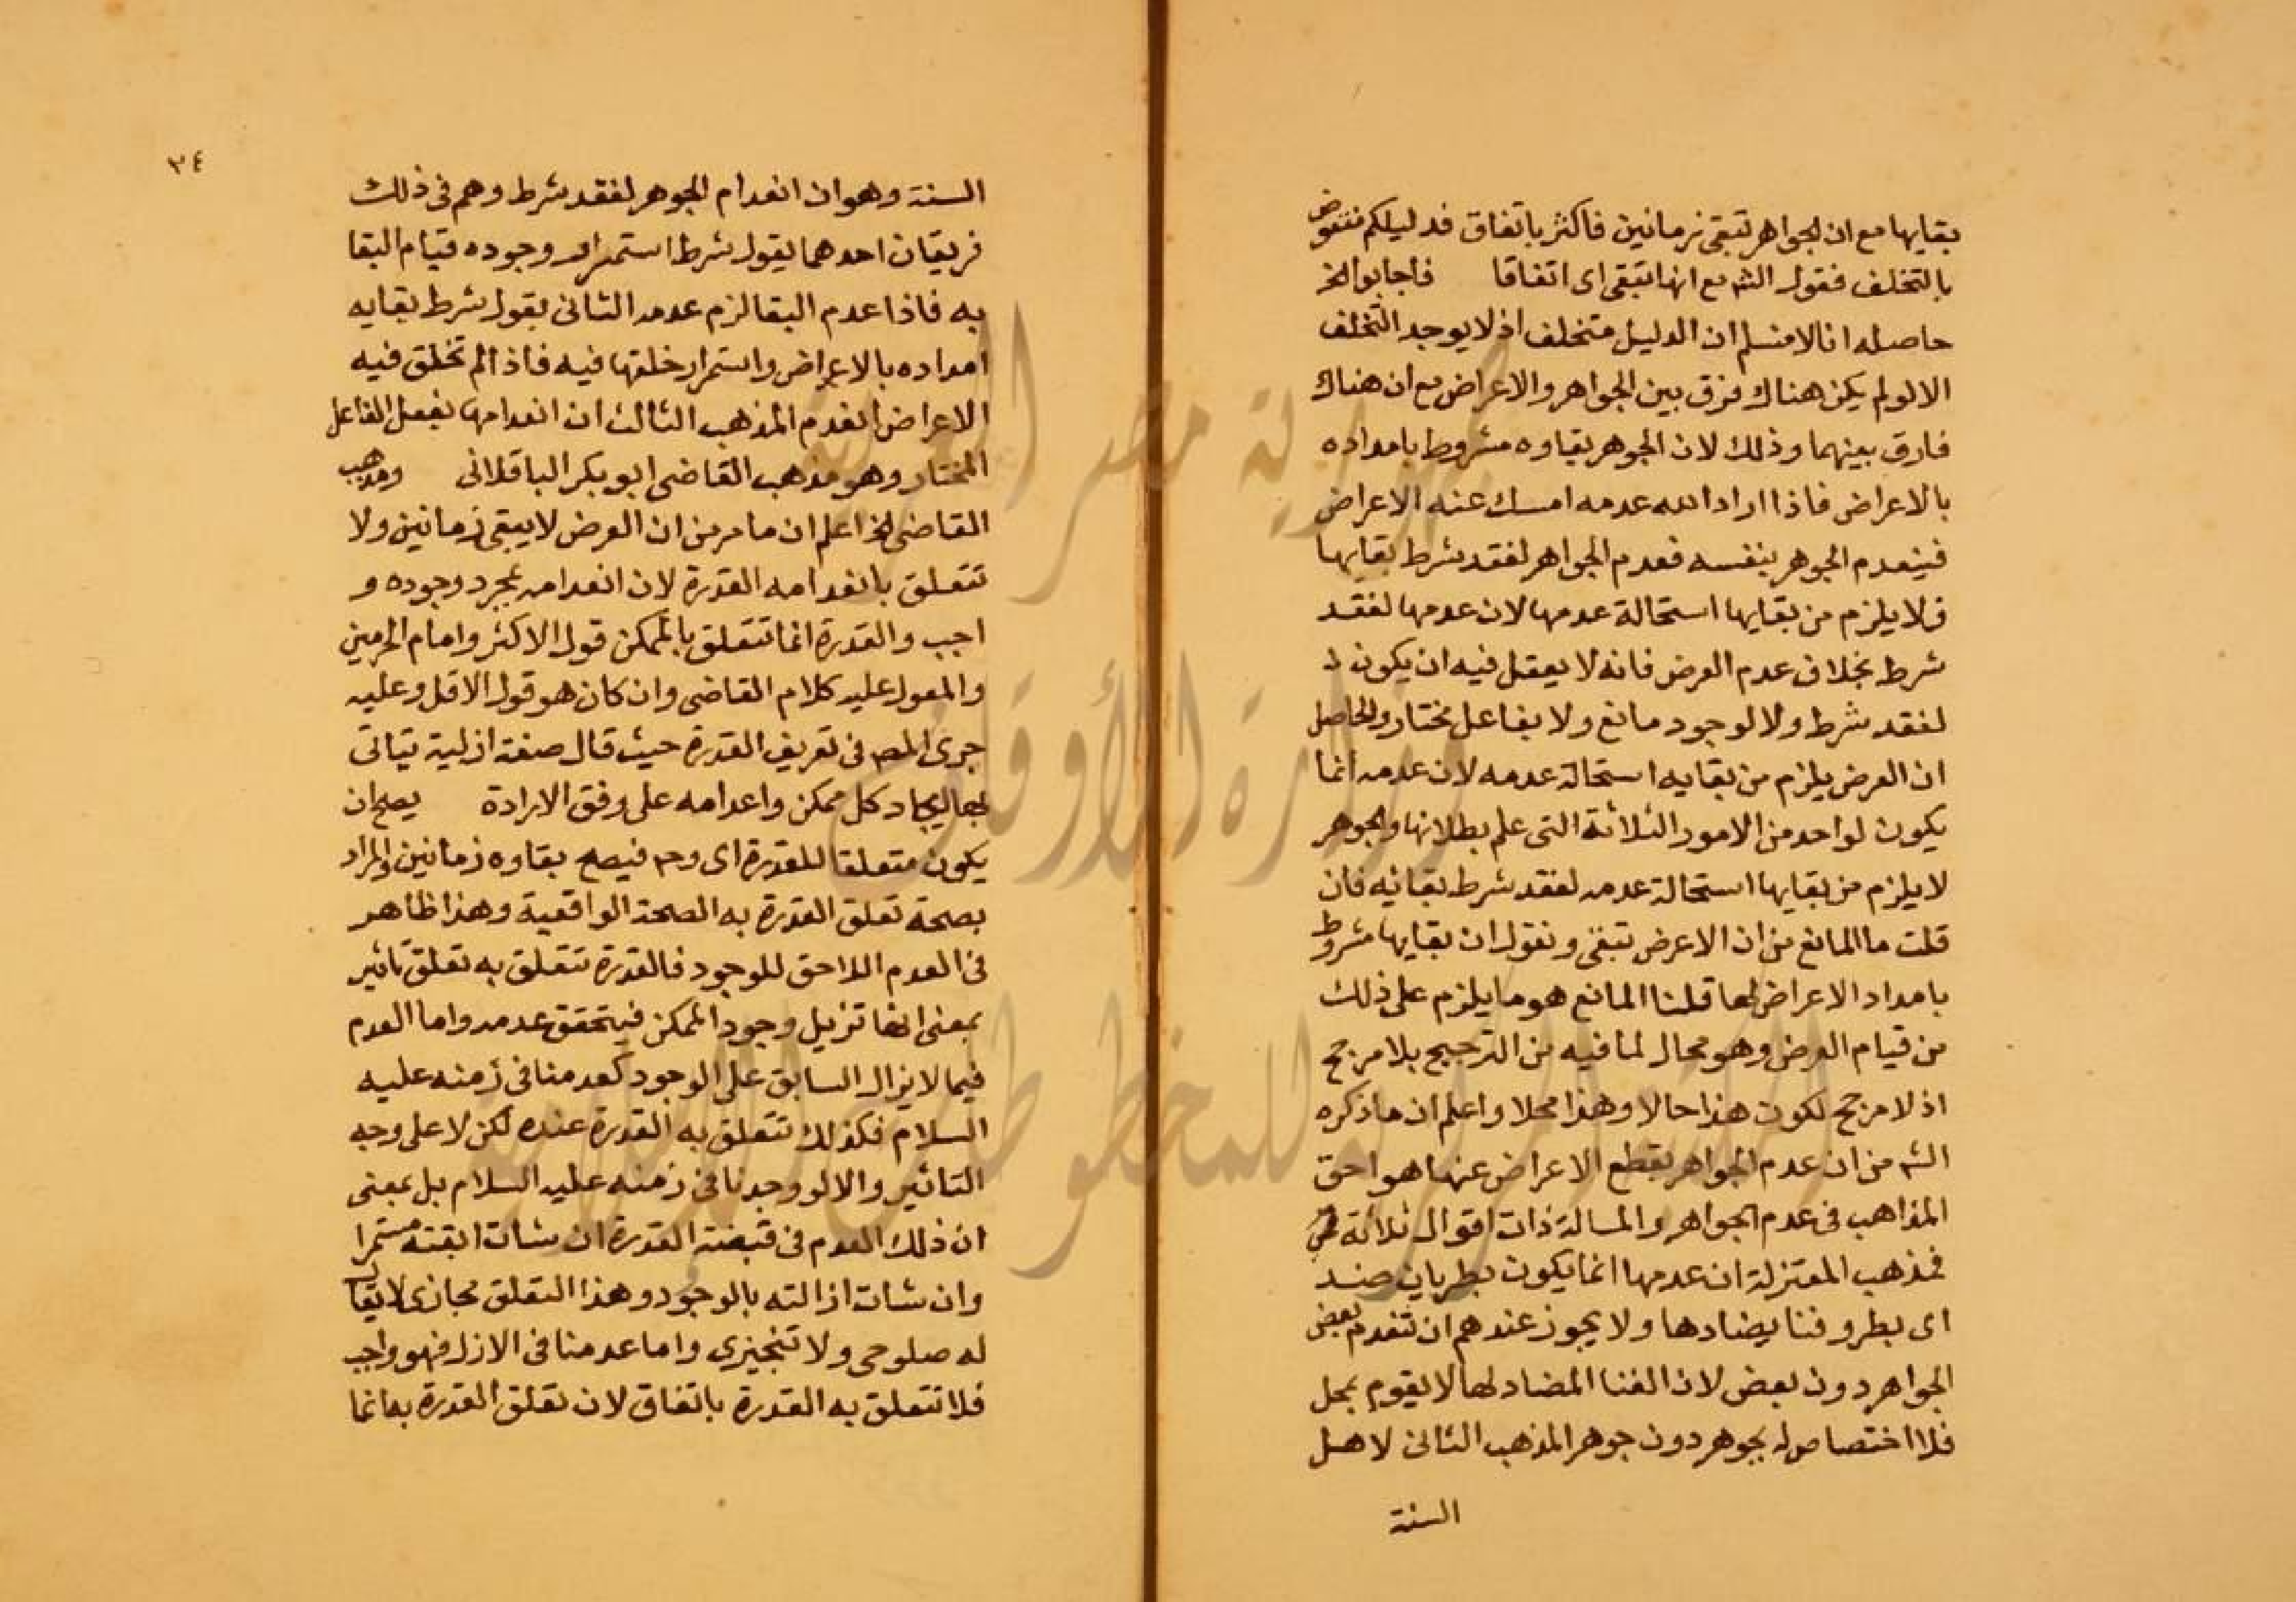 بقايها مع ان الجواهر تبقى زمانين فاكثر باتفاق فدليلكم منقوض
بالتخلف فقول الشه مع انها تبقى اى اتفاقا فاجابوا الخ
حاصله انا لا نسلم ان الدليل متخلف اذ لا يوجد التخلف
الا لو لم يكن هناك فرق بين الجواهر والاعراض مع ان هناك
فارق بينهما وذلك لان الجوهر بقاوه مشروط بامداده
بالاعراض فاذا اراد الله عدمه امسك عنه الاعراض
فينعدم الجوهر بنفسه فعدم الجواهر لفقد شرط بقايها
فلا يلزم من بقايها استحالة عدمها لان عدمها لفقد
شرط بخلاف عدم العرض فانه لا يعقل فيه ان يكون
لفقد شرط ولا لوجود مانع ولا بفاعل مختار والحاصل
ان العرض يلزم من بقايه استحالة عدمه لان عدمه انما
يكون لواحد من الامور الثلاثة التى علم بطلانها والجوهر
لا يلزم من بقايها استحالة عدمه لفقد شرط بقائه فان
قلت ما المانع من ان الاعرض تبقى ونقول ان بقايها مشروط
بامداد الاعراض لها قلنا المانع هو ما يلزم على ذلك
من قيام العرض وهو محال لما فيه من الترجيح بلا مرجح
اذ لا مرجح لكون هذا حالا وهذا محلا واعلم ان ما ذكره
الشه من ان عدم الجواهر بقطع الاعراض عنها هو احق
المذاهب فى عدم الجواهر والمسالة ذات اقوال ثلاثة
فمذهب المعتزلة ان عدمها انما يكون بطريان ضد
اى بطرو فنا يضادها ولا يجوز عندهم ان تنعدم بعض
الجواهر دون بعض لان الفنا المضاد لها لا يقوم بمحل
فلا اختصاص له بجوهر دون جوهر المذهب الثانى لاهل
السنة
٣٤
السنة وهو ان انعدام الجوهر لفقد شرط وهم فى ذلك
فريقان احدهما يقول شرط استمرار وجوده قيام البقا
به فاذا عدم البقا لزم عدمه الثانى يقول شرط بقايه
امداده بالاعراض واستمرار خلقها فيه فاذا لم تخلق فيه
الاعراض انعدم المذهب الثالث ان انعدامها بفعل الفاعل
المختار وهو مذهب القاضى ابو بكر الباقلانى ومذهب
القاضى الخ اعلم ان ما مر من ان العرض لا يبقى زمانين ولا
تتعلق بانعدامه القدرة لان انعدامه بمجرد وجوده و
اجب والقدرة انما تتعلق بالممكن قول الاكثر وامام الحرمين
والمعول عليه كلام القاضى وان كان هو قول الاقل وعليه
جرى المص فى تعريف القدرة حيث قال صفة ازلية يتاتى
بها ايجاد كل ممكن واعدامه على وفق الارادة يصلح ان
يكون متعلقا للقدرة اى وح فيصح بقاوه زمانين والمراد
بصحة تعلق القدرة به الصحة الواقعية وهذا ظاهر
فى العدم اللاحق للوجود فالقدرة تتعلق به تعلق تاثير
بمعنى انها تزيل وجود الممكن فيتحقق عدمه واما العدم
فيما لا يزال السابق على الوجود كعدمنا فى زمنه عليه
السلام فكذلك تتعلق به القدرة عنده لكن لا على وجه
التاثير والا لو وجدنا فى زمنه عليه السلام بل بمعنى
ان ذلك العدم فى قبضة القدرة ان شات ابقته مستمرا
وان شات ازالته بالوجود وهذا التعلق مجازى لا يقال
له صلوحى ولا تنجيزي واما عدمنا فى الازل فهو واجب
فلا تتعلق به القدرة باتفاق لان تعلق القدرة به انما